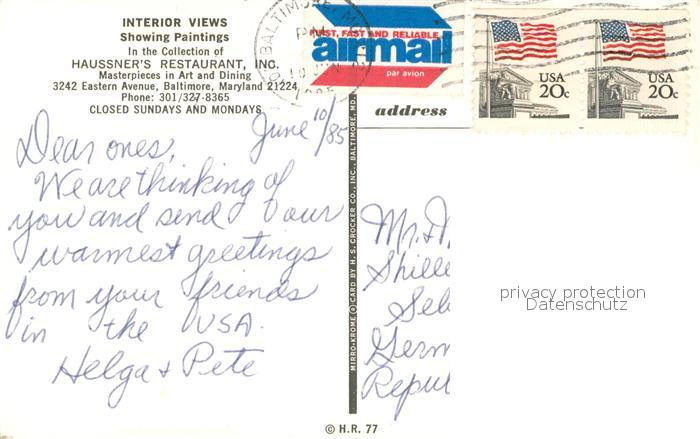 INTERIOR VIEWS
Showing Paintings
In the Collection of
HAUSSNER'S RESTAURANT, INC.
Masterpieces in Art and Dining
3242 Eastern Avenue, Baltimore, Maryland 21224
Phone: 301/327-8365
CLOSED SUNDAYS AND MONDAYS
BALTIMORE, MD
PM
10
1985
FAST, FAST AND RELIABLE
airmail
par avion
USA
20c
USA
20c
address
June 10/85
Dear ones,
We are thinking of
you and send our
warmest greetings
from your friends
in the USA.
Helga + Pete
MIRRO-KROME ® CARD BY H. S. CROCKER CO., INC., BALTIMORE, MD.
Mr. &
Shille
Seb
Germ
Repu
privacy protection
Datenschutz
© H.R. 77